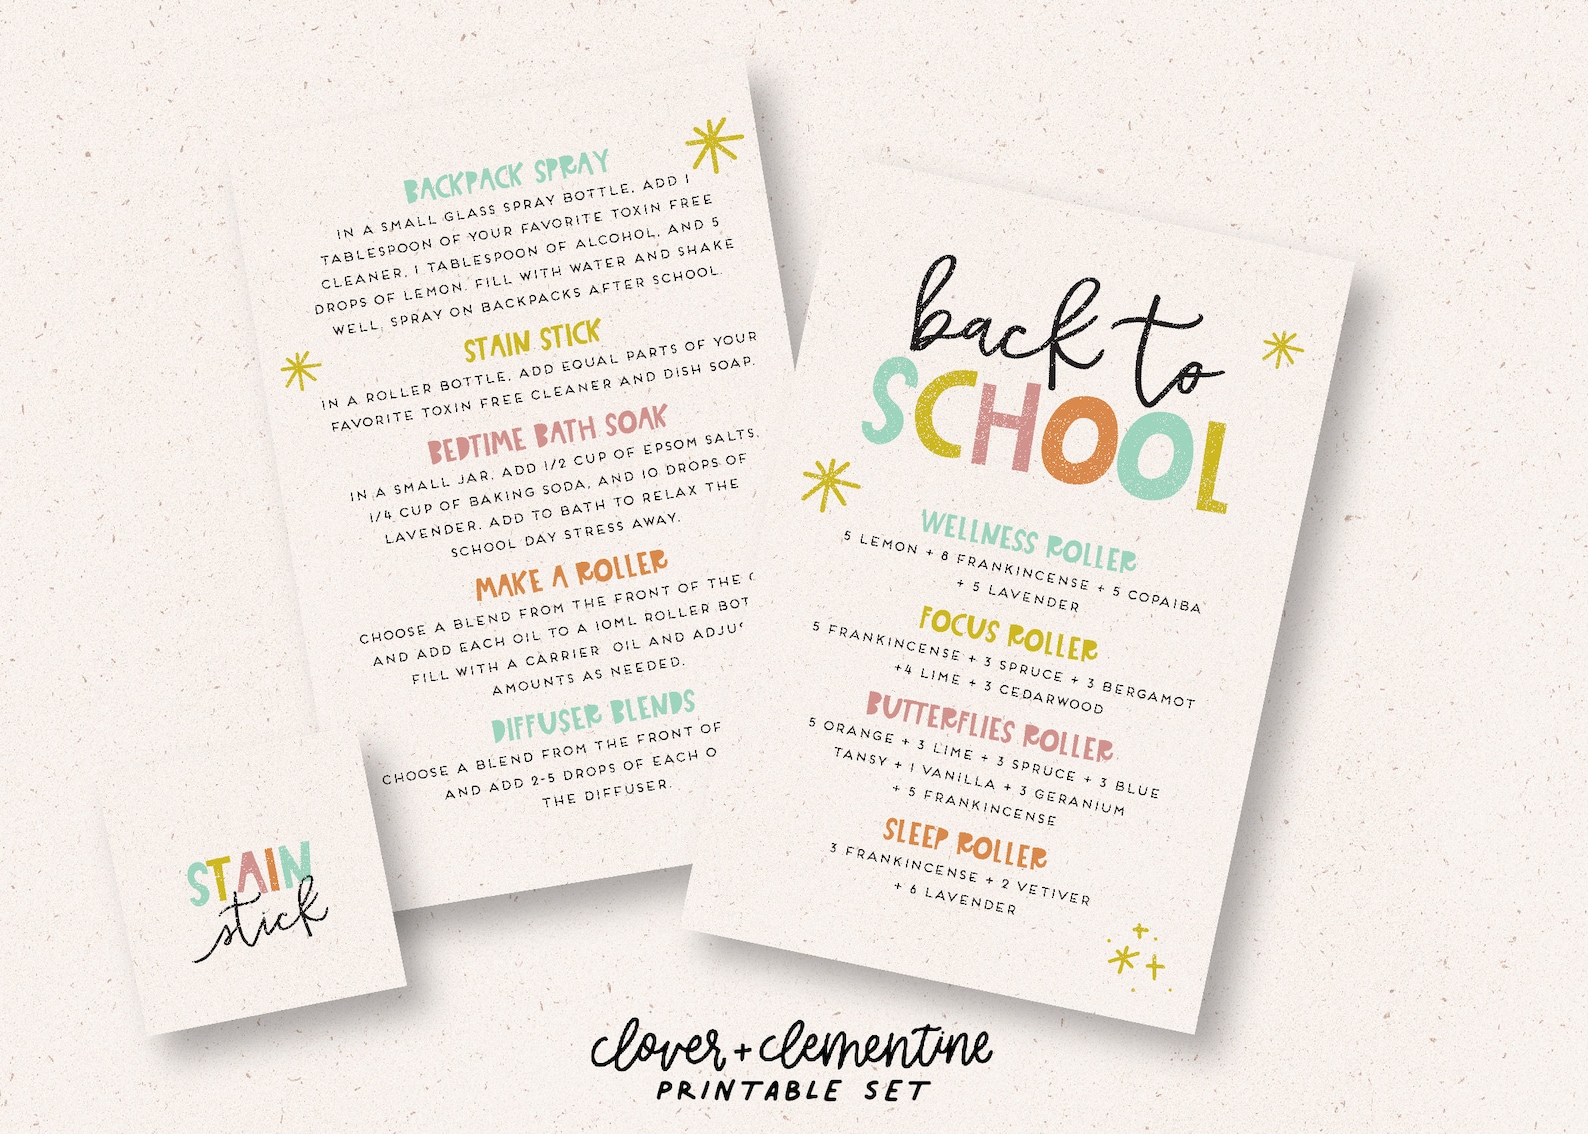 BACKPACK SPRAY
IN A SMALL GLASS SPRAY BOTTLE, ADD 1
TABLESPOON OF YOUR FAVORITE TOXIN FREE
CLEANER, 1 TABLESPOON OF ALCOHOL, AND 5
DROPS OF LEMON. FILL WITH WATER AND SHAKE
WELL, SPRAY ON BACKPACKS AFTER SCHOOL.
STAIN STICK
IN A ROLLER BOTTLE, ADD EQUAL PARTS OF YOUR
FAVORITE TOXIN FREE CLEANER AND DISH SOAP.
BEDTIME BATH SOAK
IN A SMALL JAR, ADD 1/2 CUP OF EPSOM SALTS,
1/4 CUP OF BAKING SODA, AND 10 DROPS OF
LAVENDER. ADD TO BATH TO RELAX THE
SCHOOL DAY STRESS AWAY.
MAKE A ROLLER
CHOOSE A BLEND FROM THE FRONT OF THE
AND ADD EACH OIL TO A 10ML ROLLER BOT
FILL WITH A CARRIER OIL AND ADJUS
AMOUNTS AS NEEDED.
DIFFUSER BLENDS
CHOOSE A BLEND FROM THE FRONT OF
AND ADD 2-5 DROPS OF EACH O
THE DIFFUSER.
STAIN
stick
back to
SCHOOL
WELLNESS ROLLER
5 LEMON + 8 FRANKINCENSE + 5 COPAIBA
+ 5 LAVENDER
FOCUS ROLLER
5 FRANKINCENSE + 3 SPRUCE + 3 BERGAMOT
+4 LIME + 3 CEDARWOOD
BUTTERFLIES ROLLER
5 ORANGE + 3 LIME + 3 SPRUCE + 3 BLUE
TANSY + 1 VANILLA + 3 GERANIUM
+ 5 FRANKINCENSE
SLEEP ROLLER
3 FRANKINCENSE + 2 VETIVER
+ 6 LAVENDER
clover + clementine
PRINTABLE SET